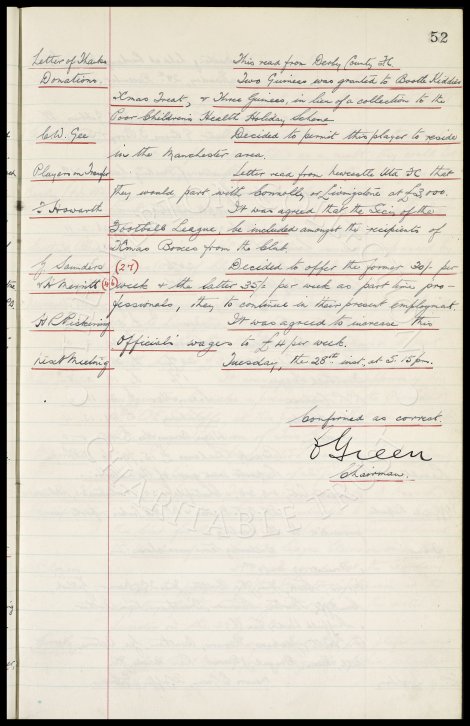 52
Letter of Thanks This read from Derby County F.C.
Donations. Two Guineas was granted to Booth Kiddies
Xmas Treat, & Three Guineas, in lieu of a collection to the
Poor Children's Health Holiday Scheme
C.W. Gee Decided to permit this player to reside
in the Manchester area.
Players on Transfer Letter read from Newcastle Utd FC that
they would part with Connolly or Livingstone at £3,000.
F. Howarth It was agreed that the Secy of the
Football League be included amongst the recipients of
Xmas Boxes from the Club
G. Saunders (27) Decided to offer the former 30/- per
& H Merritt (46) week & the latter 35/- per week as part time pro-
fessionals, they to continue in their present employment.
H.R. Pickering It was agreed to increase this
Officials wages to £4 per week.
Next Meeting Tuesday, the 28th inst. at 5.15 pm.
Confirmed as correct
Green
Chairman.
CHARITABLE